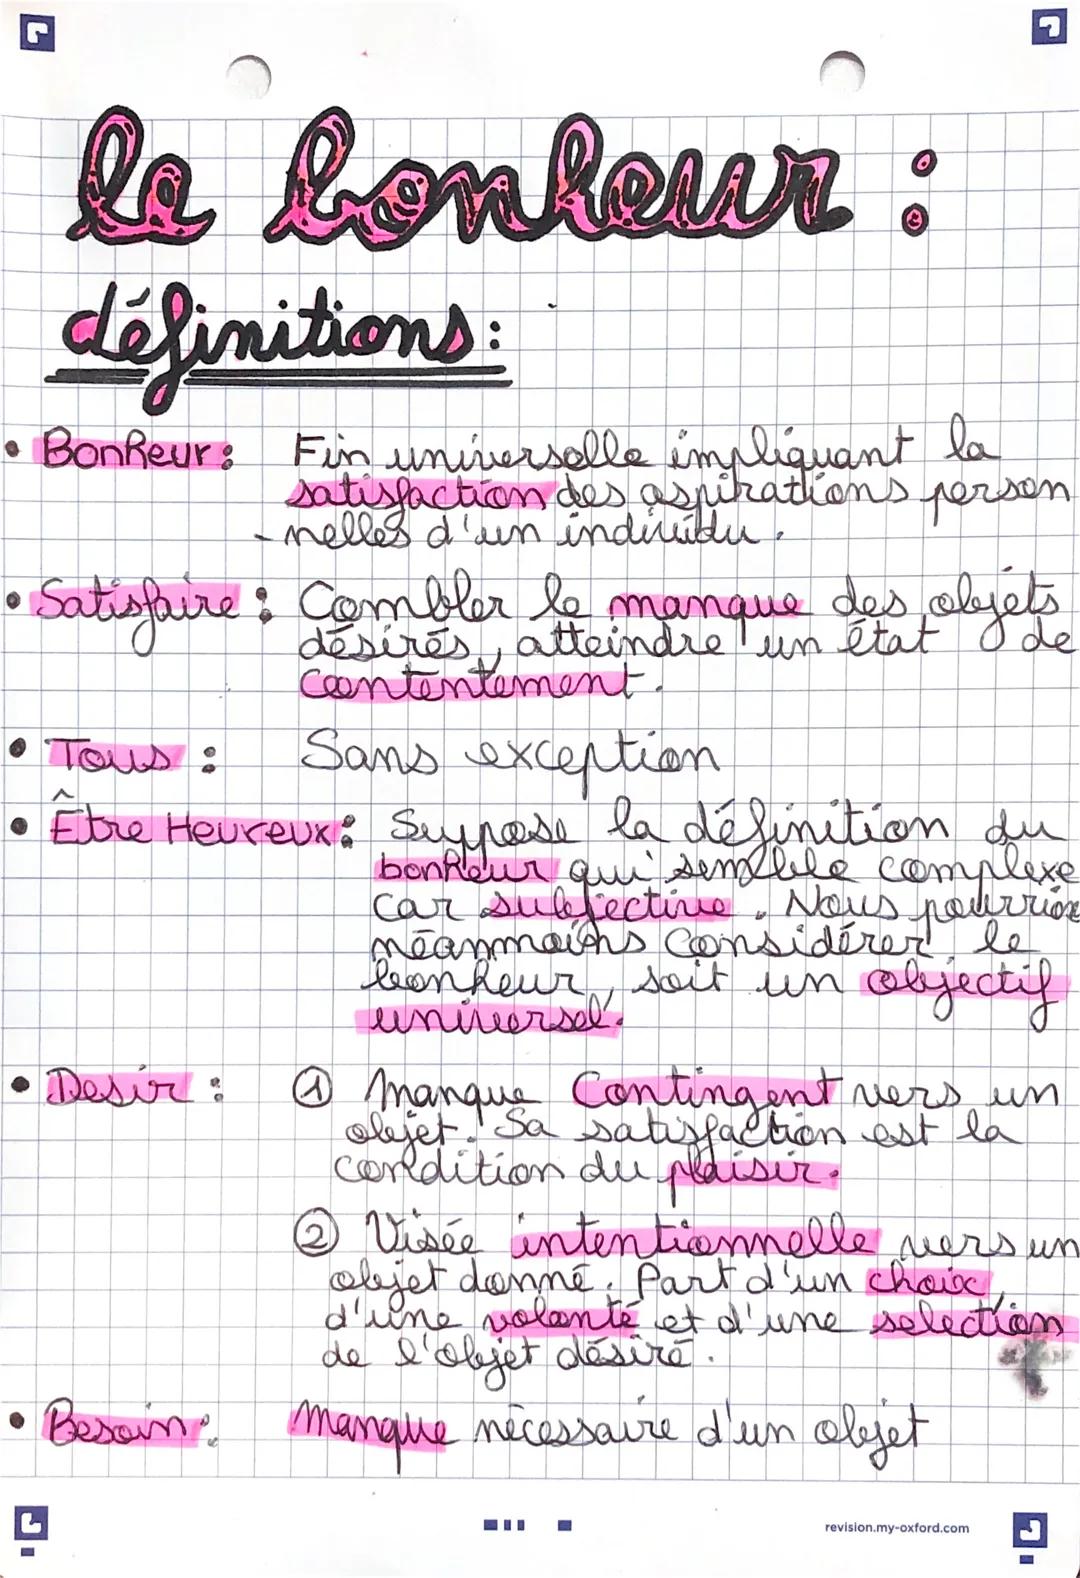 le bonheur :
définitions :
• Bonheur : Fin universelle impliquant la
satisfaction des aspirations person
-nelles d'un individu.
• Satisfaire : Combler le manque des objets
désirés, atteindre un état de
contentement.
• Tous : Sans exception
• Être Heureux : Suppose la définition du
bonheur qui semble complexe
car subjective. Nous pourrions
néanmoins considérer le
bonheur, soit un objectif
universel.
• Desir : ① Manque Contingent vers un
objet. Sa satisfaction est la
condition du plaisir.
② Visée intentionnelle vers un
objet donné. Part d'un choix,
d'une volonté et d'une selection
de l'objet désiré.
• Besoin : Manque nécessaire d'un objet
revision.my-oxford.com